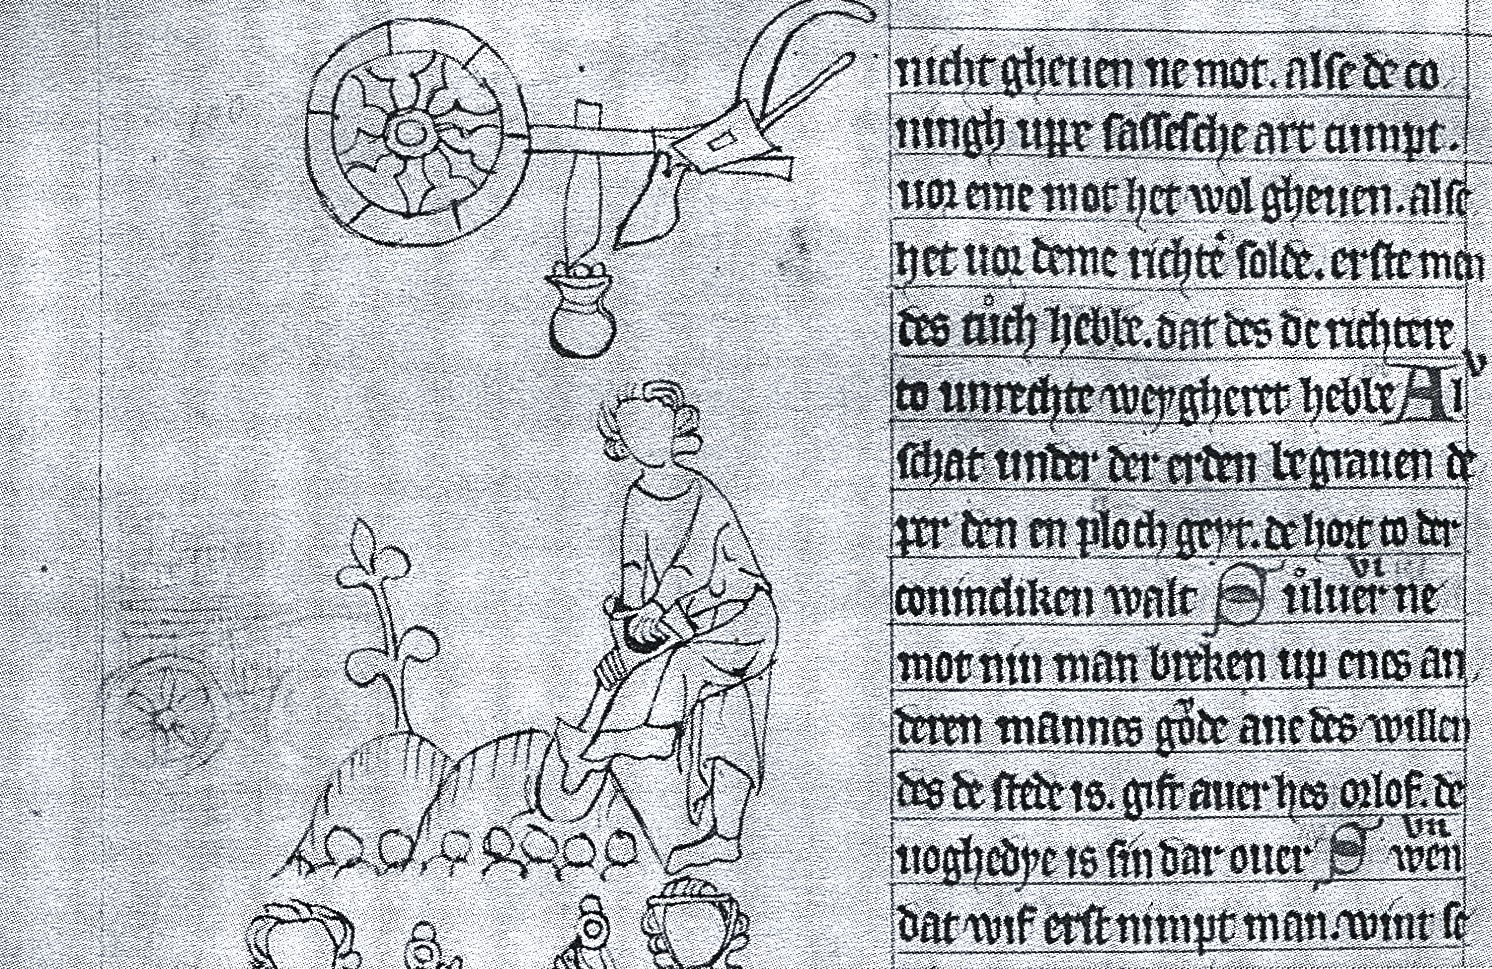 nicht gheuen ne mot. alse de co
ningh uppe sassesche art cumpt.
uor eme mot het wol gheuen. alse
het uor deme richte solde. erste men
des tüch hebbe. dat des de richtere
to unrechte weygheret hebbe Al v
schat under der erden begrauen de
per den en ploch geyt. de hort to der
coninckliken walt S iluuer ne vi
mot nin man breken up enes an
deren mannes gode ane des willen
des de stede is. gift auer hes orlof. de
uoghedye is sin dar ouer S wen vii
dat wif erst nimpt man. wint se